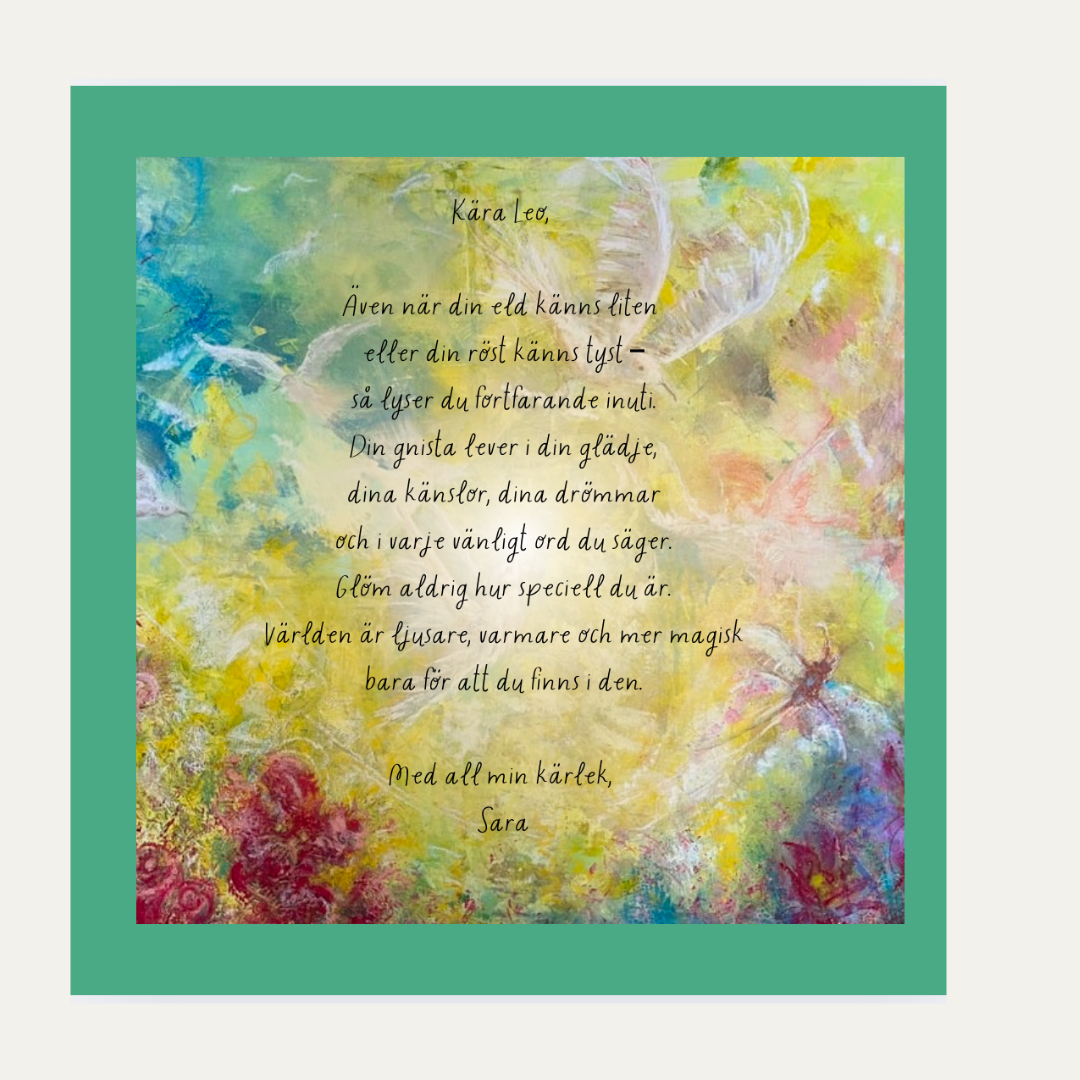 Kära Leo,
Även när din eld känns liten
eller din röst känns tyst –
så lyser du fortfarande inuti.
Din gnista lever i din glädje,
dina känslor, dina drömmar
och i varje vänligt ord du säger.
Glöm aldrig hur speciell du är.
Världen är ljusare, varmare och mer magisk
bara för att du finns i den.
Med all min kärlek,
Sara